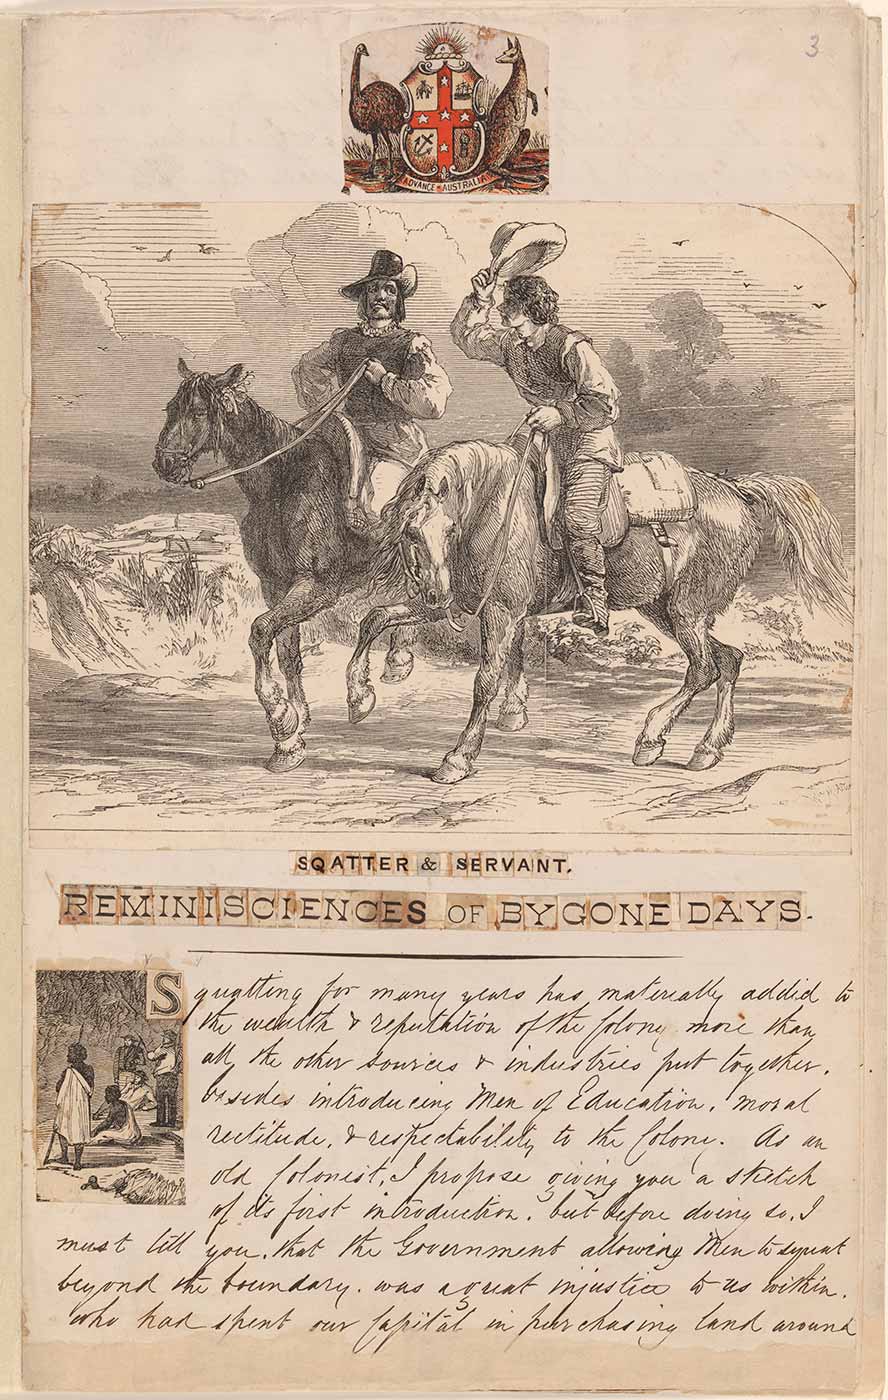 3
ADVANCE AUSTRALIA
SQATTER & SERVANT.
REMINISCIENCES OF BYGONE DAYS.
Squatting for many years has materially added to
the wealth & reputation of the Colony more than
all the other sources & industries put together.
besides introducing Men of Education, moral
rectitude, & respectability to the Colony. As an
old Colonist, I propose giving you a sketch
of its first introduction. but before doing so, I
must tell you, that the Government allowing Men to squat
beyond the boundary. was a great injustice to us within.
who had spent our Capital in purchasing land around